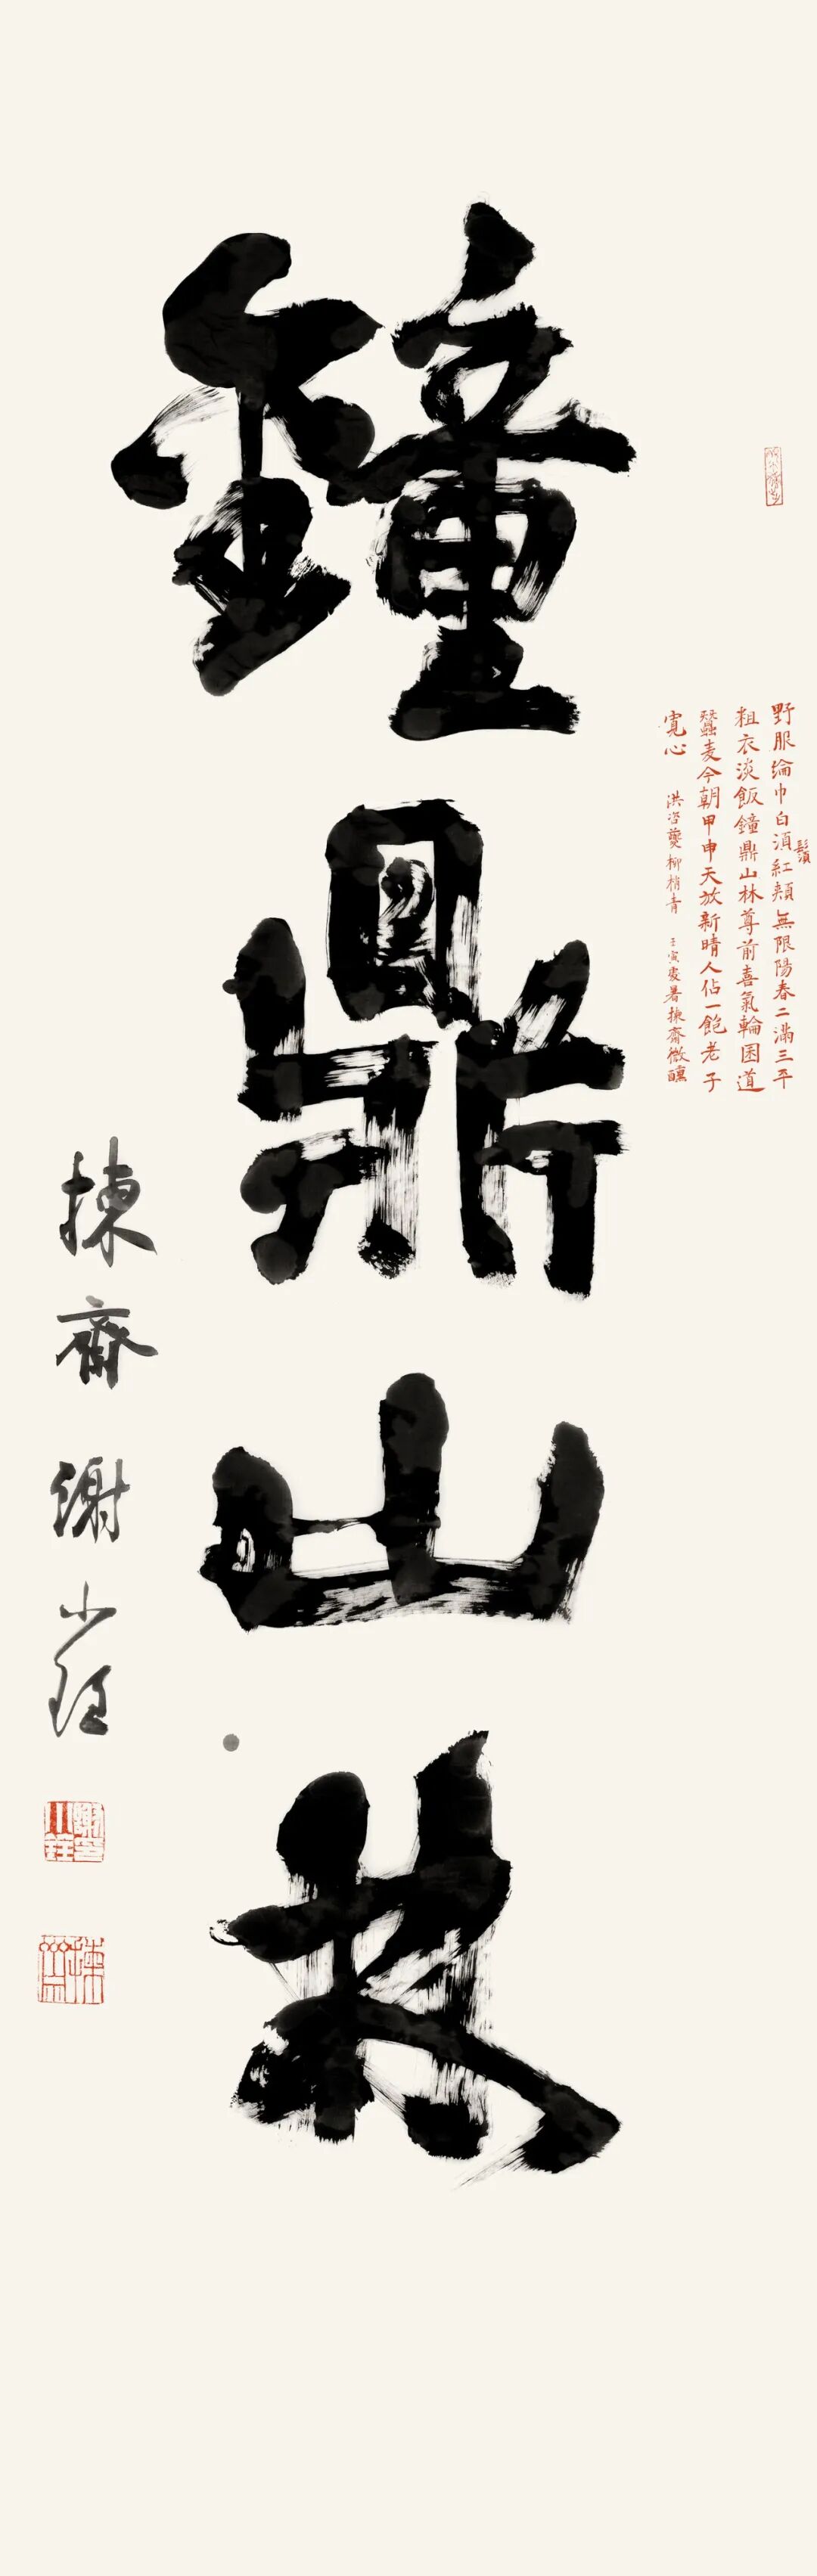 鐘鼎山林
野服綸巾白須紅頰無限陽春二滿三平
鬚
粗衣淡飯鐘鼎山林尊前喜氣輪囷道
蠶麦今朝甲申天放新晴人佔一飽老子
寬心
洪咨夔柳梢青 壬寅處暑揀齋微醺
揀齋謝小銓
謝小銓
揀齋